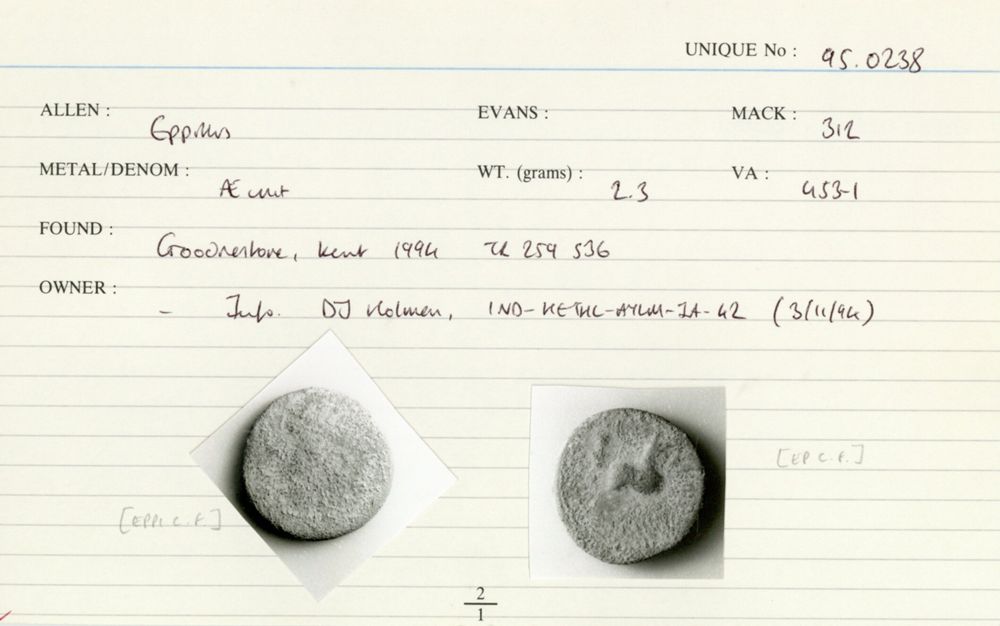 UNIQUE No : 95.0238
ALLEN : Eppillus EVANS : MACK : 312
METAL/DENOM : Æ unit WT. (grams) : 2.3 VA : 453-1
FOUND : Goodnestone, Kent 1994 TR 254 536
OWNER : - Info. DJ Holman, IND-
[EP C. F.]
[EPPI C. F.]
2
1